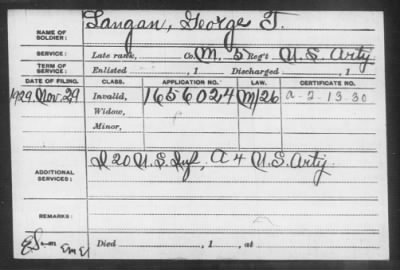 NAME OF SOLDIER: Langan, George T.
SERVICE: Late rank, Co. M, 5 Reg't U.S. Arty
TERM OF SERVICE: Enlisted , 1 Discharged , 1
DATE OF FILING. CLASS. APPLICATION NO. LAW. CERTIFICATE NO.
1929 Nov. 29 Invalid, 1656024 M/26 a-2-13-30
Widow,
Minor,
ADDITIONAL SERVICES: D 20 U.S. Inf, A 4 U.S. Arty.
REMARKS:
Died , 1 , at